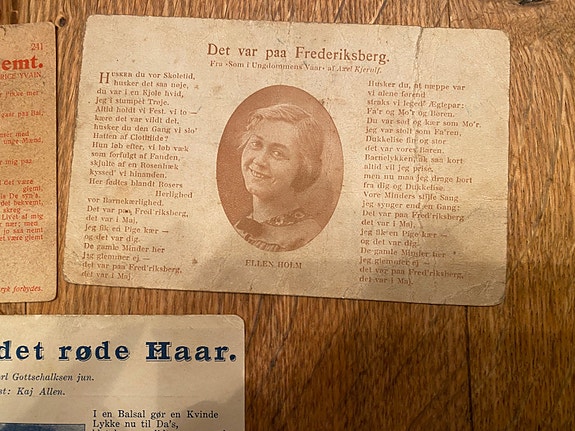 241
emt.
Det var paa Frederiksberg.
Fra »Som i Ungdommens Vaar« af Axel Kjerulf.
HUSKER du vor Skoletid,
husker det saa nøje,
du var i en Kjole hvid,
jeg i stumpet Trøje.
Altid holdt vi Fest, vi to —
kære det var vildt det,
husker du den Gang vi slo'
Hatten af Clothilde?
Hun løb efter, vi løb væk
som forfulgt af Fanden,
skjulte af en Rosenhæk
kyssed' vi hinanden.
Her fødtes blandt Rosers
Herlighed
vor Barnekærlighed.
Det var paa Fred'riksberg,
det var i Maj,
jeg fik en Pige kær —
og det var dig.
De gamle Minder her
jeg glemmer ej —
det var paa Fred'riksberg,
det var i Maj.
ELLEN HOLM
Husker du, at næppe var
vi alene førend
straks vi leged' Ægtepar:
Fa'r og Mo'r og Børen.
Du var sød og kær som Mo'r,
jeg var stolt som Fa'ren,
Dukkelise fin og stor
det var vores Barén.
Barnelykken, ak saa kort
altid vil jeg prise,
men nu maa jeg drage bort
fra dig og Dukkelise.
Vore Minders stille Sang
jeg synger end en Gang:
Det var paa Fred'riksberg,
det var i Maj,
jeg fik en Pige kær —
og det var dig.
De gamle Minder her
jeg glemmer ej —
det var paa Fred'riksberg,
det var i Maj.
ryk forbydes.
det røde Haar.
Gottschalksen jun.
st: Kaj Allen.
I en Balsal gør en Kvinde
Lykke nu til Da's,